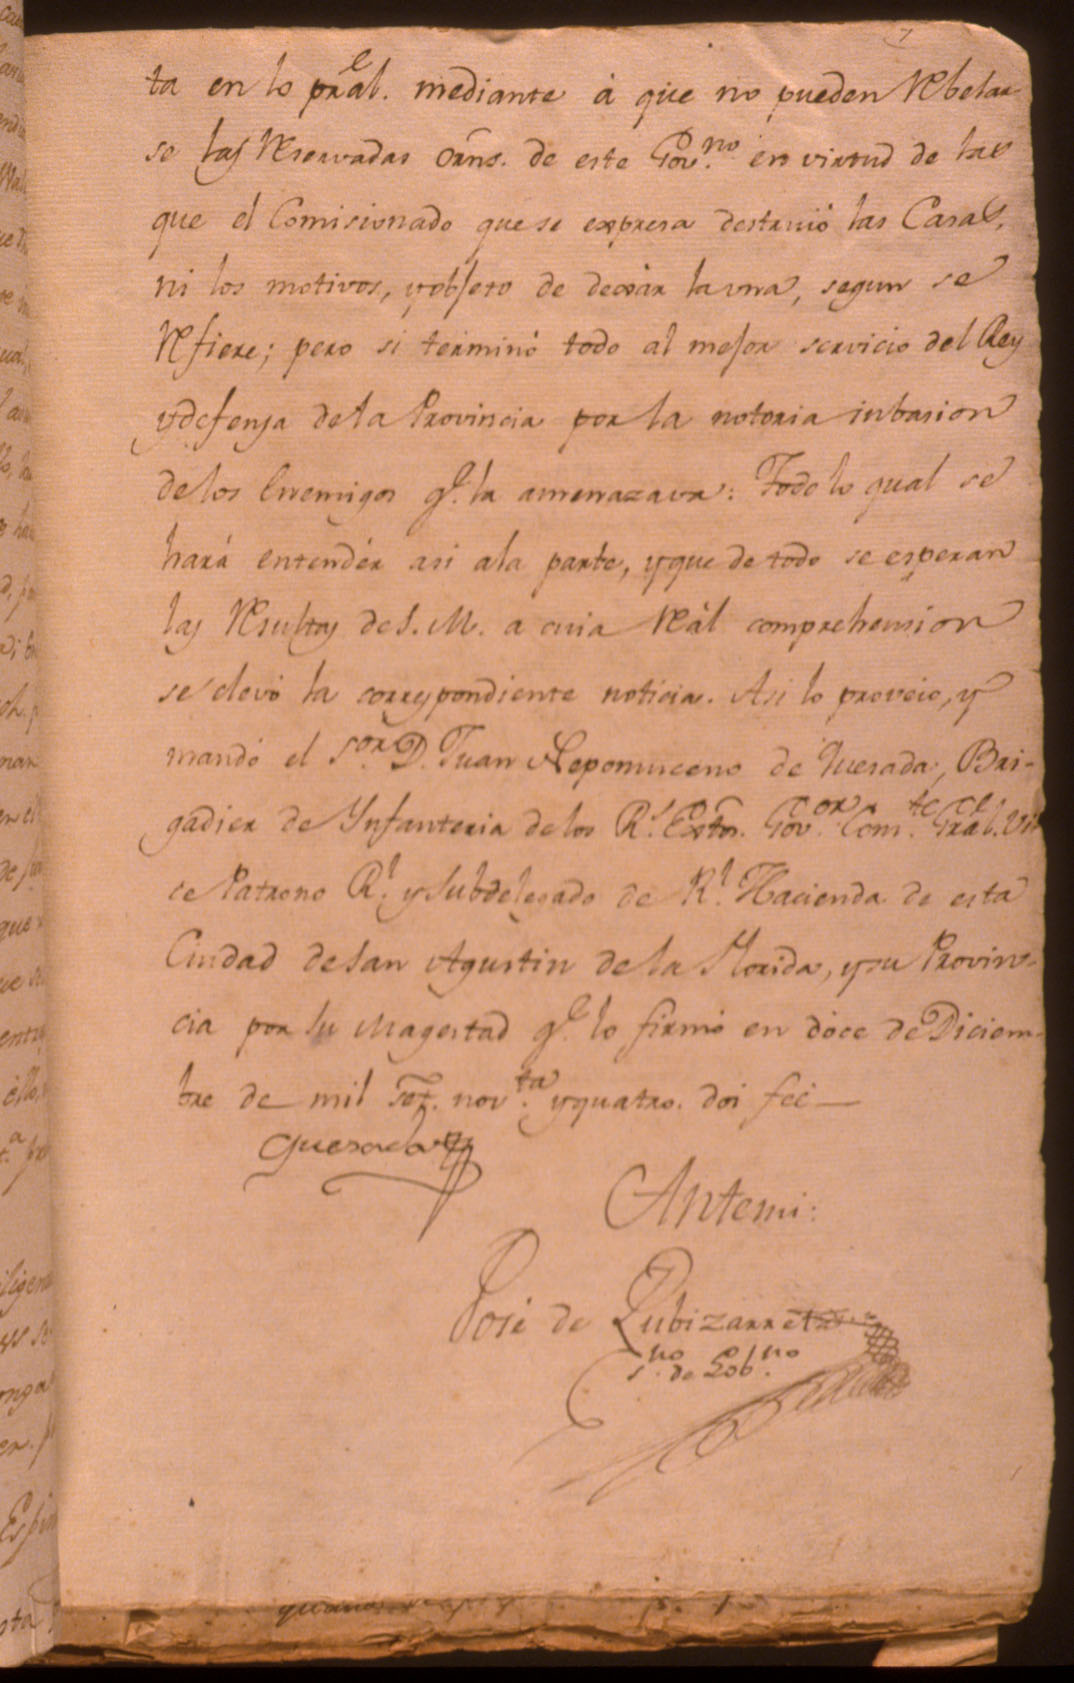 7
ta en lo pral. mediante á que no pueden Rebelar-
se las Reservadas Orns. de este Govno. en virtud de las
que el Comisionado que se expresa destruió las Casas,
ni los motivos, y objeto de dexár la una, segun se
Refiere; pero si terminó todo al mejor servicio del Rey
y defensa de la Provincia por la notoria inbasion
de los Enemigos qe. la amenazava: Todo lo qual se
hará entendér asi a la parte, y que de todo se esperan
las Resultas de S. M. a cuia Reàl comprehension
se elevó la correspondiente noticia. Asi lo proveio, y
mandó el Sor. D. Juan Nepomuceno de Quesada, Bri-
gadier de Ynfanteria de los Rs. Extos. Govor. Comte. Gral. Vi-
ce Patrono Rl. y Subdelegado de Rl. Hacienda de esta
Ciudad de San Agustin de la Florida, y su Provin-
cia por Su Magestad qe. lo firmó en doce de Diciem-
bre de mil Set. novta. y quatro. doi feé —
Quesada
Antemi:
José de Zubizarreta
sno. de Gobno.